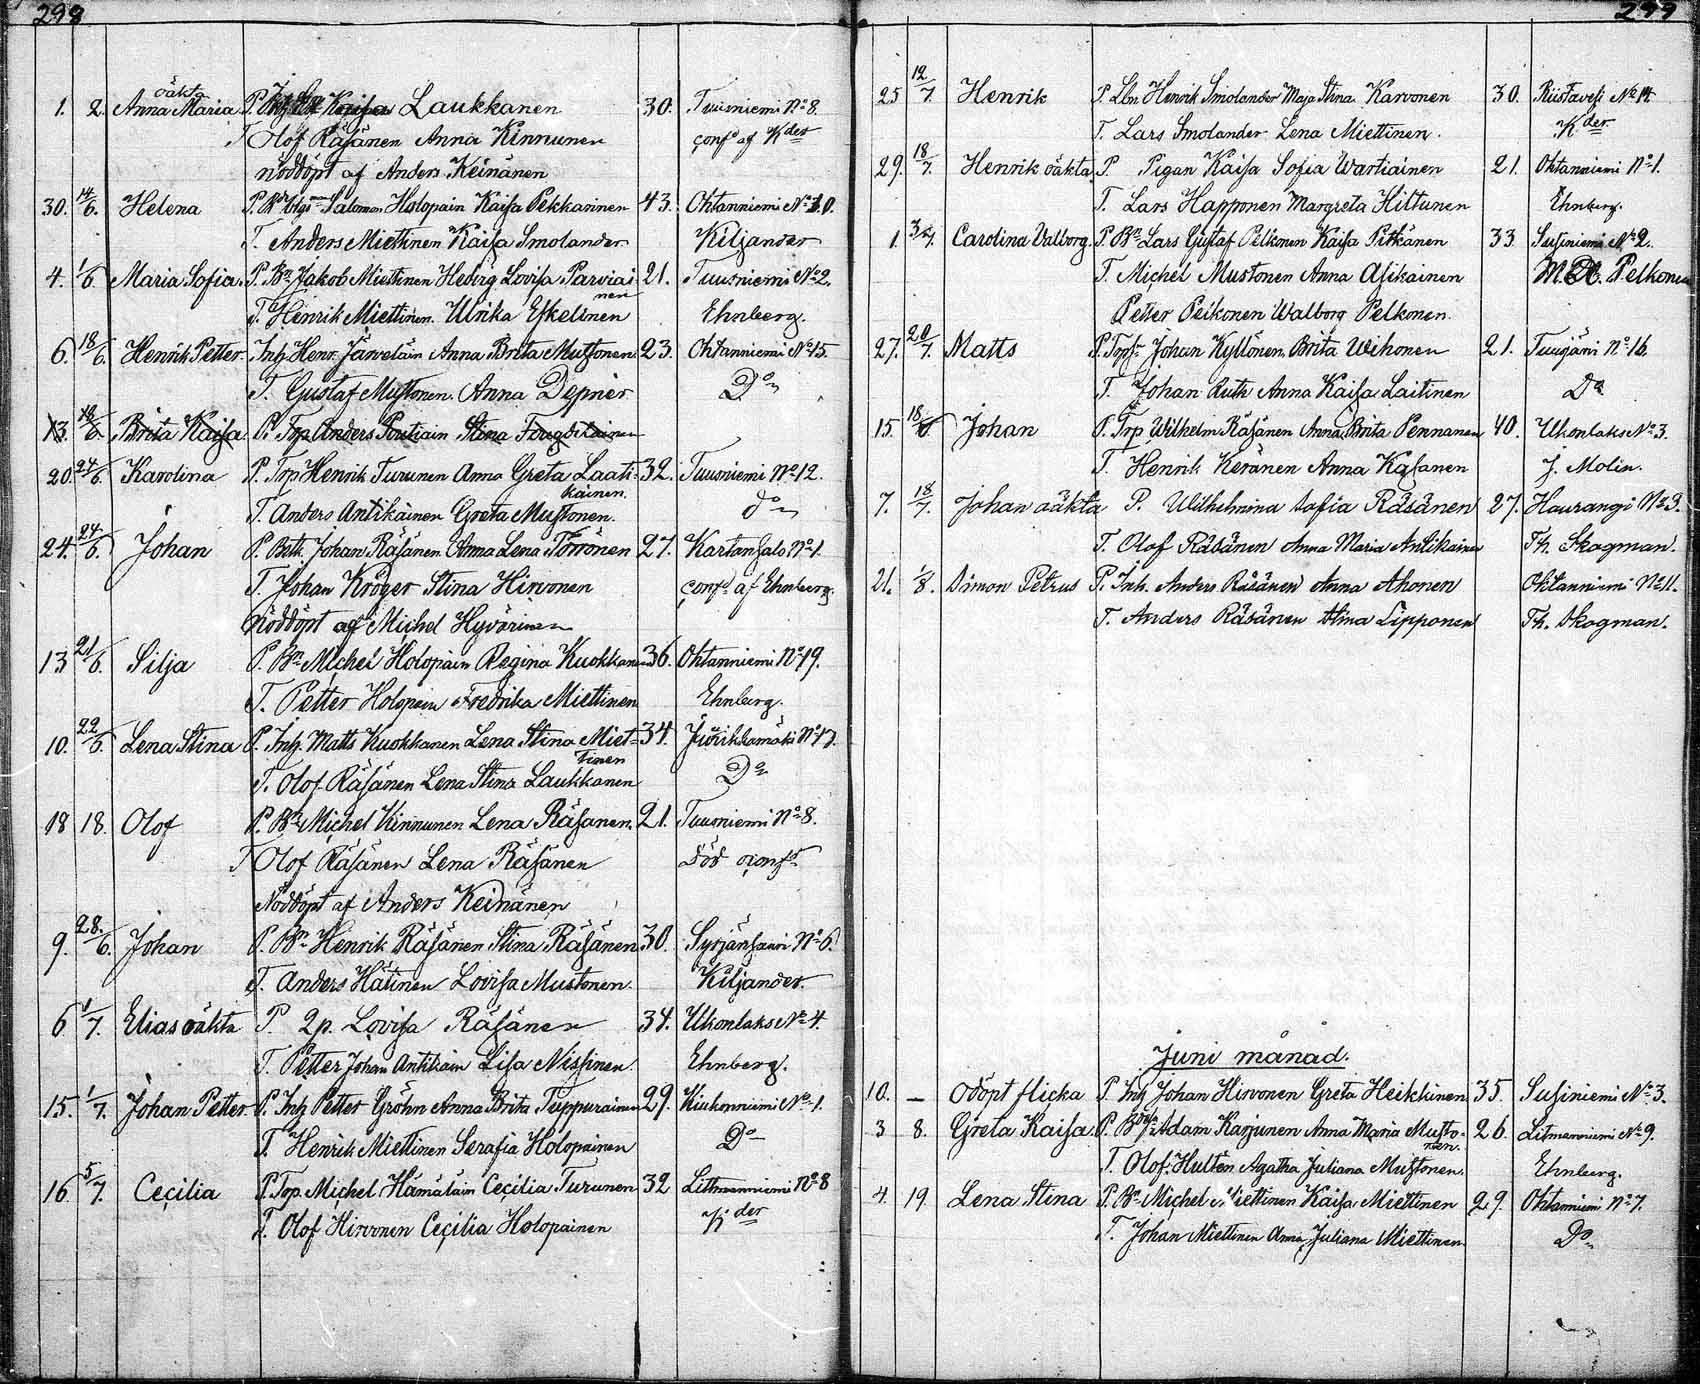 298
oäkta
1. 2. Anna Maria P. Kaisa Laukkanen 30. Tuusniemi No 8.
T Olof Räsänen Anna Kinnunen conf. af Kder
nöddöpt af Anders Keinänen
30. 14/6. Helena P. Salomon Holopain Kaisa Pekkarinen 43. Ohtanniemi No 10.
T. Anders Miettinen Kaisa Smolander Kiljander
4. 1/6 Maria Sofia. P. Bn Jakob Miettinen Hedvig Lovisa Parviai- 21. Tuusniemi No 2.
nen
T. Henrik Miettinen. Ulrika Eskelinen Ehnberg.
6. 18/6. Henrik Petter Inh. Henr. Järveläin Anna Brita Mustonen. 23. Ohtanniemi No 15.
T. Gustaf Mustonen. Anna Depnèr Do
13. 18/6. Brita Kaisa P. Trp Anders Poutiain Stina
20. 24/6. Karolina P. Trp Henrik Turunen Anna Greta Laati- 32. Tuusniemi No 12.
kainen.
T. Anders Antikäinen Greta Mustonen. do
24. 24/6. Johan P. Johan Räsänen Anna Lena Törrönen 27. Kartansalo No 1.
T. Johan Kröger Stina Hirvonen conf. af Ehnberg.
Nöddöpt af Michel Hyvärinen
13 21/6. Silja P. Bn Michel Holopain Regina Kuokkanen 36. Ohtanniemi No 19.
T. Petter Holopain Fredrika Miettinen Ehnberg.
10. 22/6. Lena Stina P. Inh. Matts Kuokkanen Lena Stina Miet- 34. Juurikkamäki No 17.
tinen
T. Olof Räsänen Lena Stina Laukkanen Do
18 18. Olof P. Bn Michel Kinnunen Lena Räsänen. 21. Tuusniemi No 8.
T Olof Räsänen Lena Räsänen död
Nöddöpt af Anders Keinänen
9. 28/6. Johan P. Bn Henrik Räsänen Stina Räsänen 30. Syrjänsaari No 6.
T. Anders Hätinen Lovisa Mustonen. Kiljander.
6 1/7. Elias oäkta P. Qp. Lovisa Räsänen 34. Ukonlaks No 4.
T. Petter Johan Antikain Lisa Nissinen. Ehnberg.
15. 1/7. Johan Petter P. Inh Petter Gröhn Anna Brita Tuppurainen 29. Kiukonniemi No 1.
T. Henrik Miettinen Serafia Holopainen Do
16. 5/7. Cecilia P. Trp. Michel Hämäläin Cecilia Turunen 32 Litmanniemi No 8
T. Olof Hirvonen Cecilia Holopainen Kder
299
25 12/7. Henrik P. Lbn Henrik Smolander Maja Stina Karvonen 30. Riistavesi No 14.
T. Lars Smolander Lena Miettinen. Kder
29. 18/7. Henrik oäkta P. Pigan Kaisa Sofia Wartiainen 21. Ohtanniemi No 1.
T. Lars Happonen Margreta Hiltunen Ehnberg.
1. Carolina Valborg. P. Bn Lars Gustaf Pelkonen Kaisa Pitkänen 33 Susiniemi No 2.
T. Michel Mustonen Anna Asikainen Pelkonen
Petter Peikonen Walborg Pelkonen.
27. 20/7. Matts P. Johan Kyllönen. Brita Wihonen 21. Tuusjärvi No 16.
T. Johan Ruth Anna Kaisa Laitinen Do
15. 18/6 Johan P. Trp Wilhelm Räsänen Anna Brita Pennanen 40. Ukonlaks No 3.
T. Henrik Keränen Anna Kasanen J. Molin.
7. 18/7. Johan oäkta P. Wilhelmina Sofia Räsänen 27. Haurangi No 3.
T. Olof Räsänen Anna Maria Antikainen Th. Skogman.
21. 1/8. Simon Petrus P. Inh. Anders Räsänen Anna Ahonen Ohtanniemi No 11.
T. Anders Räsänen Stina Lipponen Th. Skogman.
Juni månad.
10. — Odöpt flicka P. Inh Johan Hirvonen Greta Heikkinen 35. Susiniemi No 3.
3 8. Greta Kaisa. P. Adam Karjunen Anna Maria Musto- 26. Litmanniemi No 9.
nen.
T. Olof. Hultèn Agatha Juliana Mustonen. Ehnberg.
4. 19. Lena Stina P. Bn Michel Miettinen Kaisa Miettinen 29. Ohtanniemi No 7.
T. Johan Miettinen Anna Juliana Miettinen. Do